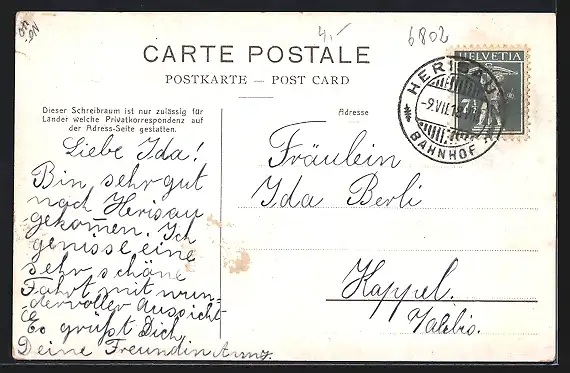 no
-on
4.-
6802
CARTE POSTALE
POSTKARTE — POST CARD
HELVETIA
7½
HERISAU
-9.VII.18
BAHNHOF
Dieser Schreibraum ist nur zulässig für
Länder welche Privatkorrespondenz auf
der Adress-Seite gestatten.
Adresse
Liebe Ida!
Bin sehr gut
nach Herisau
gekomen. Ich
genisse eine
sehr schöne
Fahrt mit wun-
dervoller Aussicht
Es grüßt Dich
Deine Freundin Anny.
Fräulein
Ida Berli
Kappel.